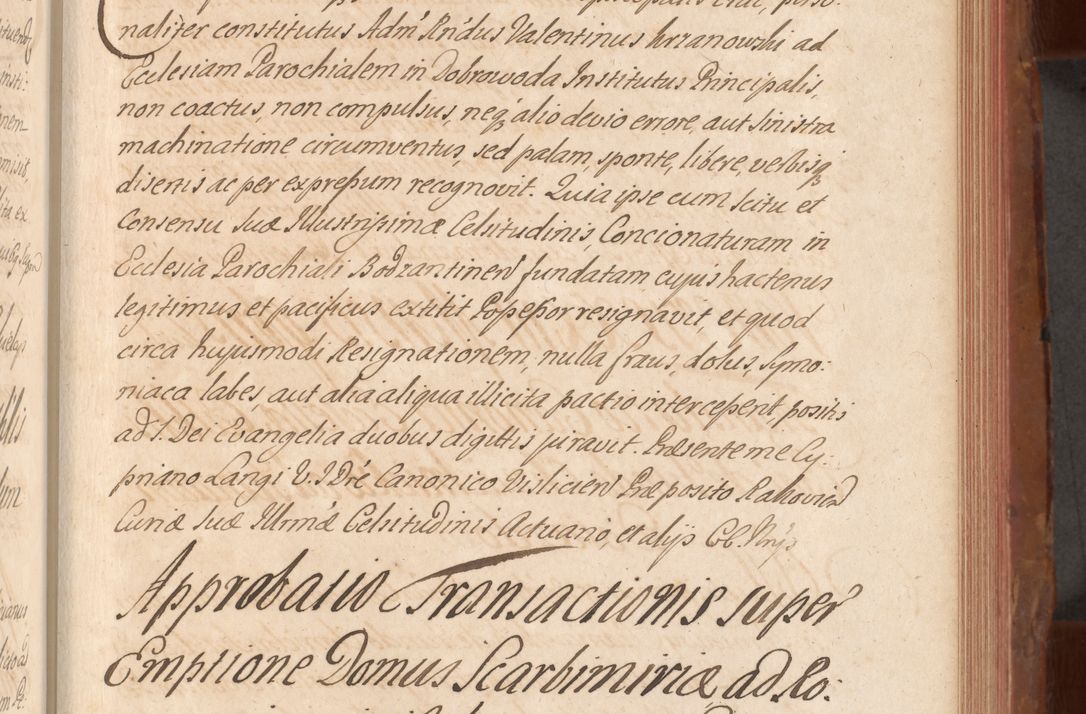 naliter constitutus Adm' Rńdus Valentinus Krzanowski ad
Ecclesiam Parochialem in Dobrowoda Institutus Principalis,
non coactus, non compulsus, neq₃ alio devio errore, aut sinistra
machinatione circumventus, sed palam, sponte, libere, verbisq₃
disertis ac per expressum recognovit. Quia ipse cum scitu et
Consensu Suæ Illustrissimæ Celsitudinis, Concionaturam in
Ecclesia Parochiali Bodzantinen fundatam cujus hactenus
legitimus et pacificus extitit Possessor resignavit, et quod
circa hujusmodi Resignationem, nulla fraus, dolus, Symo-
niaca labes, aut alia aliqua illicita pactio interceperit, positis
ad S. Dei Evangelia duobus digittis juravit. Præsente me Cy-
priano Langi V. J Dre Canonico Vislicien Præposito Rakovien
Curiæ Suæ Illrmæ Celsitudinis Actuario, et alijs
Approbatio Transactionis super
Emptione Domus Scarbimiriæ ad Ro-